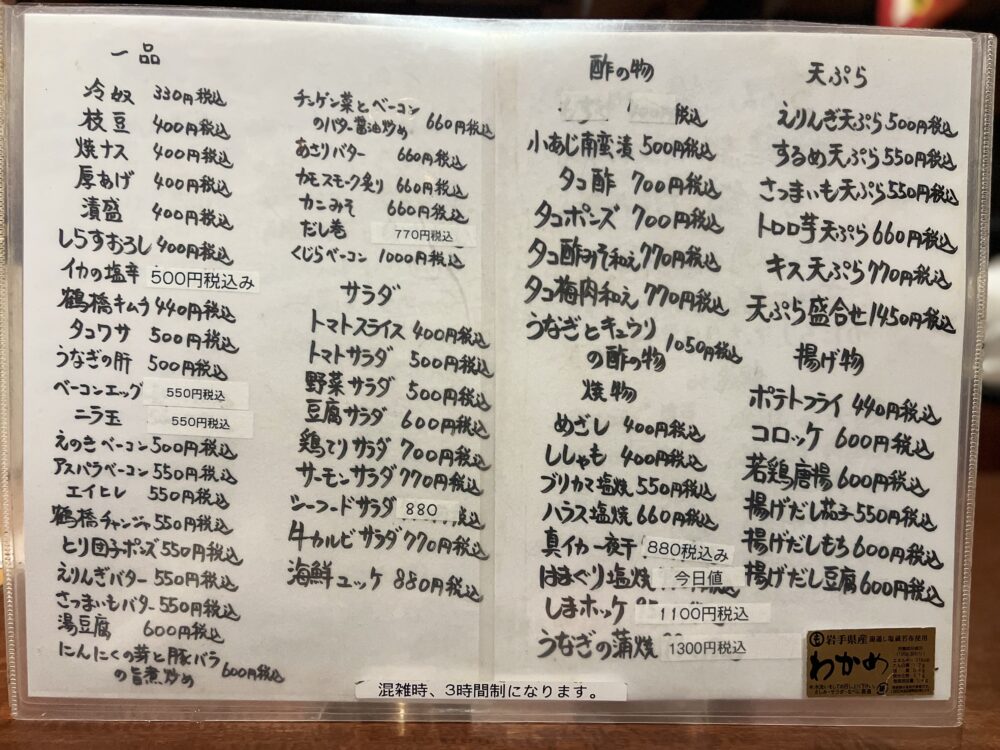 一品
冷奴 330円税込
枝豆 400円税込
焼ナス 400円税込
厚あげ 400円税込
漬盛 400円税込
しらすおろし 400円税込
イカの塩辛 500円税込み
鶴橋キムチ 440円税込
タコワサ 500円税込
うなぎの肝 500円税込
ベーコンエッグ 550円税込
ニラ玉 550円税込
えのきベーコン 500円税込
アスパラベーコン 550円税込
エイヒレ 550円税込
鶴橋チャンジャ 550円税込
とり団子ポンズ 550円税込
えりんぎバター 550円税込
さつまいもバター 550円税込
湯豆腐 600円税込
にんにくの芽と豚バラ
の旨煮炒め 600円税込
チンゲン菜とベーコン
のバター醤油炒め 660円税込
あさりバター 660円税込
カモスモーク炙り 660円税込
カニみそ 660円税込
だし巻 770円税込
くじらベーコン 1000円税込
サラダ
トマトスライス 400円税込
トマトサラダ 500円税込
野菜サラダ 500円税込
豆腐サラダ 600円税込
鶏てりサラダ 700円税込
サーモンサラダ 770円税込
シーフードサラダ 880円税込
牛カルビサラダ 770円税込
海鮮ユッケ 880円税込
酢の物
税込
小あじ南蛮漬 500円税込
タコ酢 700円税込
タコポンズ 700円税込
タコ酢みそ和え 770円税込
タコ梅肉和え 770円税込
うなぎとキュウリ
の酢の物 1050円税込
焼物
めざし 400円税込
ししゃも 400円税込
ブリカマ塩焼 550円税込
ハラス塩焼 660円税込
真イカ一夜干 880円税込み
はまぐり塩焼 今日値
しまホッケ 1100円税込
うなぎの蒲焼 1300円税込
天ぷら
えりんぎ天ぷら 500円税込
するめ天ぷら 550円税込
さつまいも天ぷら 550円税込
トロロ芋天ぷら 660円税込
キス天ぷら 770円税込
天ぷら盛合せ 1450円税込
揚げ物
ポテトフライ 440円税込
コロッケ 600円税込
若鶏唐揚 600円税込
揚げだし茄子 550円税込
揚げだしもち 600円税込
揚げだし豆腐 600円税込
岩手県産 湯通し塩蔵若布使用
わかめ
混雑時、3時間制になります。